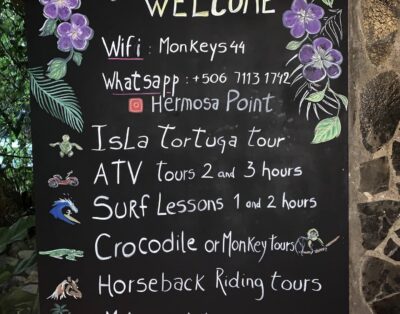 WELCOME
Wifi : Monkeys44
Whatsapp : +506 7113 1742
Hermosa Point
Isla Tortuga tour
ATV tours 2 and 3 hours
Surf Lessons 1 and 2 hours
Crocodile or Monkey tours
Horseback Riding tours